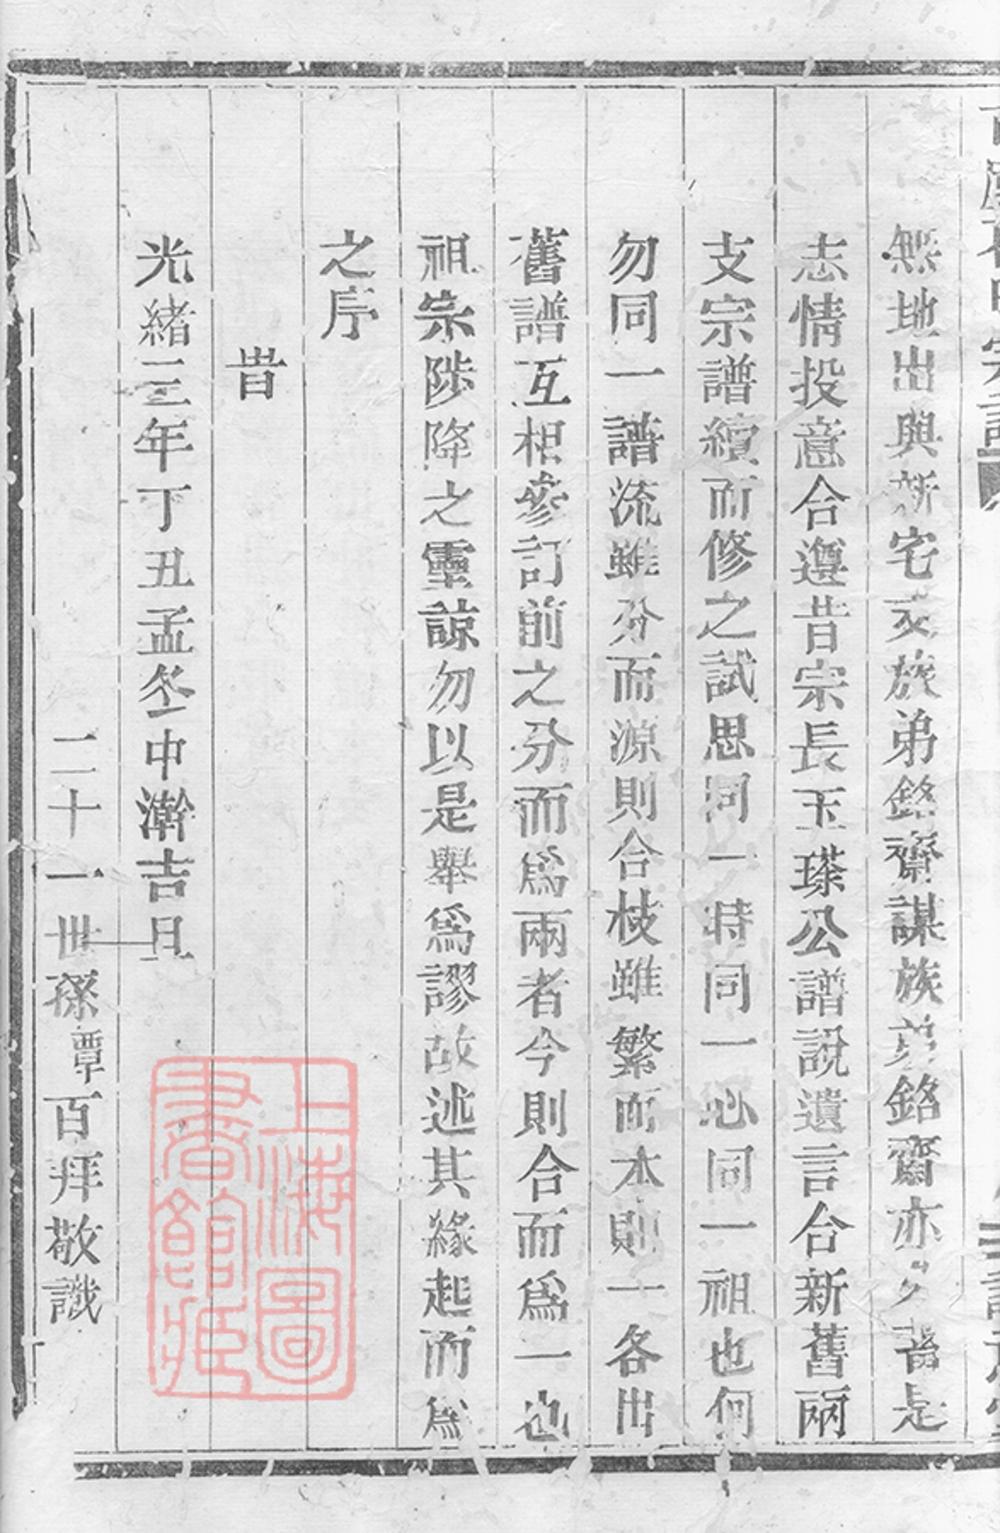 無地出與新宅支族弟銘齋謀族弟銘齋亦久蓄是
志情投意合遵昔宗長玉璨公譜說遺言合新舊兩
支宗譜續而修之試思同一時同一心同一祖也何
勿同一譜流雖分而源則合枝雖繁而本則一各出
舊譜互相參訂前之分而爲兩者今則合而爲一也
祖宗陟降之靈諒勿以是舉爲謬故述其緣起而爲
之序
旹
光緒三年丁丑孟冬中澣吉旦
二十一世孫覃百拜敬識
上海圖書館藏